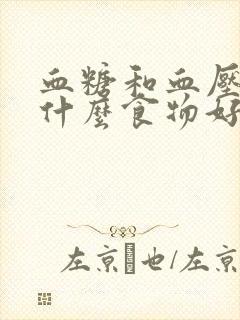 血糖和血壓
什麼食物好
左京也/左京